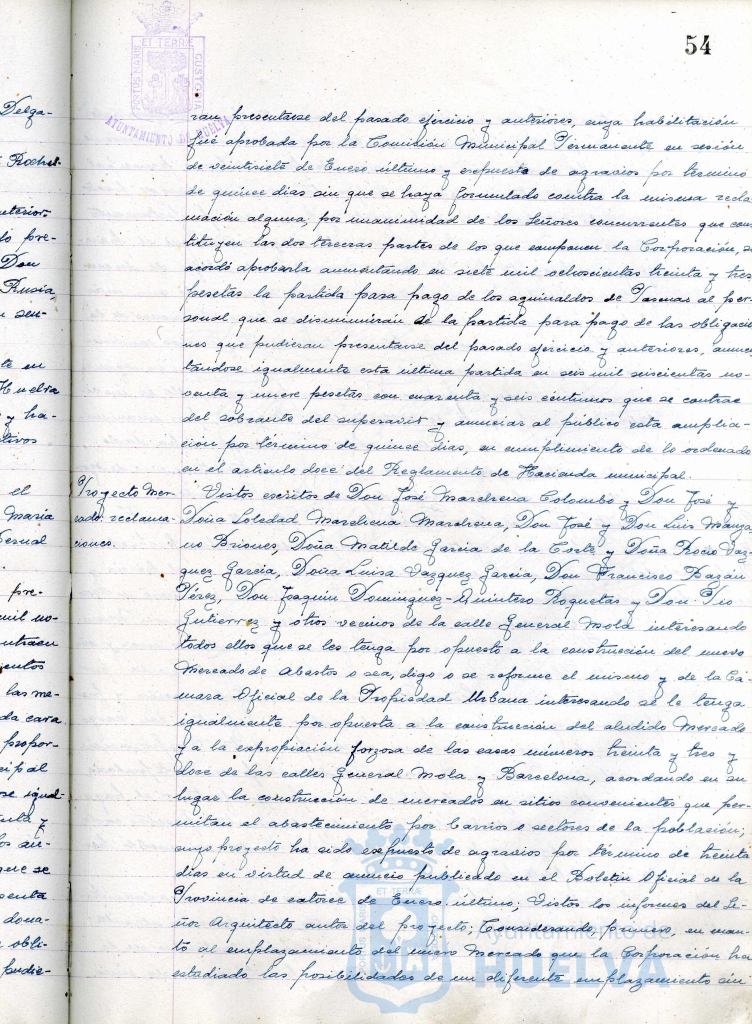 54
PORTUS MARIS
ET TERRÆ
CUSTODIA
AYUNTAMIENTO DE HUELVA
Delga-
Rochel
anterior-
do pre-
Don
Rusia,
u sen-
te en
Huelva
y ha-
tivos
el
Maria
ensual
pre-
mil no-
ntraen
ientos
las me-
da cara
propor-
cipal
ose igual-
enta y
gere se
senta
dona-
obli-
pudie-
ran presentarse del pasado ejercicio y anteriores, cuya habilitación
fué aprobada por la Comisión Municipal Permanente en sesión
de veintisiete de Enero último y expuesta de agravios por término
de quince dias sin que se haya formulado contra la misma recla-
mación alguna, por unanimidad de los Señores concurrentes que cons
tituyen las dos terceras partes de los que componen la Corporación, se
acordó aprobarla aumentando en siete mil ochocientas treinta y tres
pesetas la partida para pago de los aguinaldos de Pascuas al per
sonal que se disminuirán de la partida para pago de las obligacio
nes que pudieran presentarse del pasado ejercicio y anteriores, aumen
tándose igualmente esta última partida en seis mil seiscientas no-
venta y nueve pesetas con cuarenta y seis céntimos que se contrae
del sobrante del superavit y anunciar al público esta amplia-
ción por término de quince dias, en cumplimiento de lo ordenado
en el articulo doce del Reglamento de Hacienda municipal.
Proyecto Mer-
cado reclama-
ciones.
Vistos escritos de Don José Marchena Colombo y Don José y
Doña Soledad Marchena Marchena, Don José y Don Luis Manza
no Briones, Doña Matilde Garcia de la Corte y Doña Rocio Vaz-
quez Garcia, Doña Luisa Vazquez Garcia, Don Francisco Bazán
Pérez, Don Joaquin Dominguez-Quintero Roquetas y Don Pio
Gutierrez y otros vecinos de la calle General Mola interesando
todos ellos que se les tenga por opuesto a la construcción del nuevo
Mercado de Abastos o sea, digo o se reforme el mismo y de la Cá-
mara Oficial de la Propiedad Urbana interesando se le tenga
igualmente por opuesta a la construcción del aludido Mercado
y a la expropiación forzosa de las casas números treinta y tres y
doce de las calles General Mola y Barcelona, acordando en su
lugar la construcción de mercados en sitios convenientes que per-
mitan el abastecimiento por barrios o sectores de la población;
cuyo proyecto ha sido expuesto de agravios por término de treinta
dias en virtud de anuncio publicado en el Boletin Oficial de la
Provincia de catorce de Enero último; Vistos los informes del Se-
ñor Arquitecto autor del proyecto; Considerando, primero, en cuan-
to al emplazamiento del nuevo Mercado que la Corporación ha
estudiado las posibilidades de un diferente emplazamiento sin
ET TERRÆ
Ayuntamiento de
HUELVA